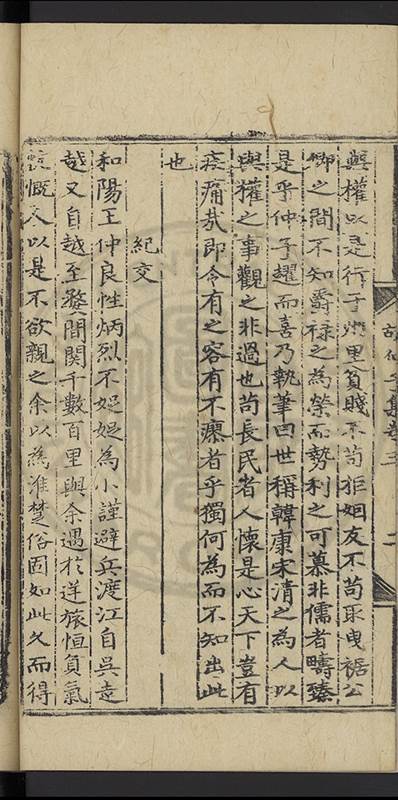 與權以是行于州里貧賤不苟拒姻友不苟取曳裾公
卿之間不知爵祿之為榮而勢利之可慕非儒者疇臻
是乎仲子躍而喜乃執筆曰世稱韓康宋清之為人以
與權之事觀之非過也苟長民者人懷是心天下豈有
疾痛哉即令有之容有不瘳者乎獨何為而不知出此
也
紀交
和陽王仲良性炳烈不娖娖為小謹避兵渡江自吳走
越又自越至婺間關千數百里與余遇於逆旅恒負氣
慷慨人以是不欲親之余以為淮楚俗固如此久而得
胡仲子集卷三
二